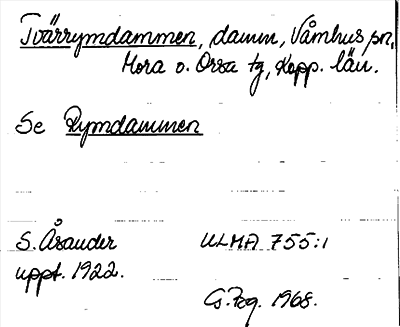 Tvärrymdammen, damm, Våmhus sn,
Mora o. Orsa tg, Kopp. län.
Se Rymdammen
S. Åsander ULMA 755:1
uppt. 1922.
1968.